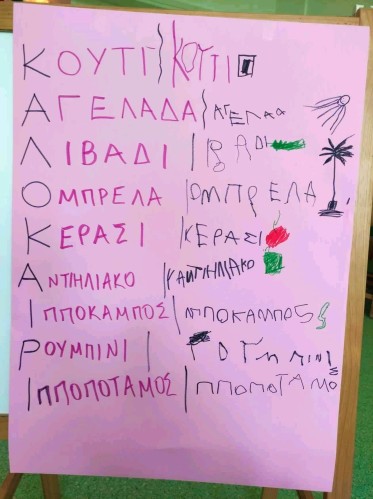 ΚΟΥΤΙ ΚΟΥΤΙ
ΑΓΕΛΑΔΑ ΑΓΕΛΑΔ
ΛΙΒΑΔΙ ΙΒΑΔΙ
ΟΜΠΡΕΛΑ ΟΜΠΡΕΛΑ
ΚΕΡΑΣΙ ΚΕΡΑΣΙ
ΑΝΤΙΗΛΙΑΚΟ ΑΝΤΙΗΛΙΑΚΟ
ΙΠΠΟΚΑΜΠΟΣ ΙΠΠΟΚΑΜΠΟΣ
ΡΟΥΜΠΙΝΙ
ΙΠΠΟΠΟΤΑΜΟΣ ΙΠΠΟΠΟΤΑΜΟ